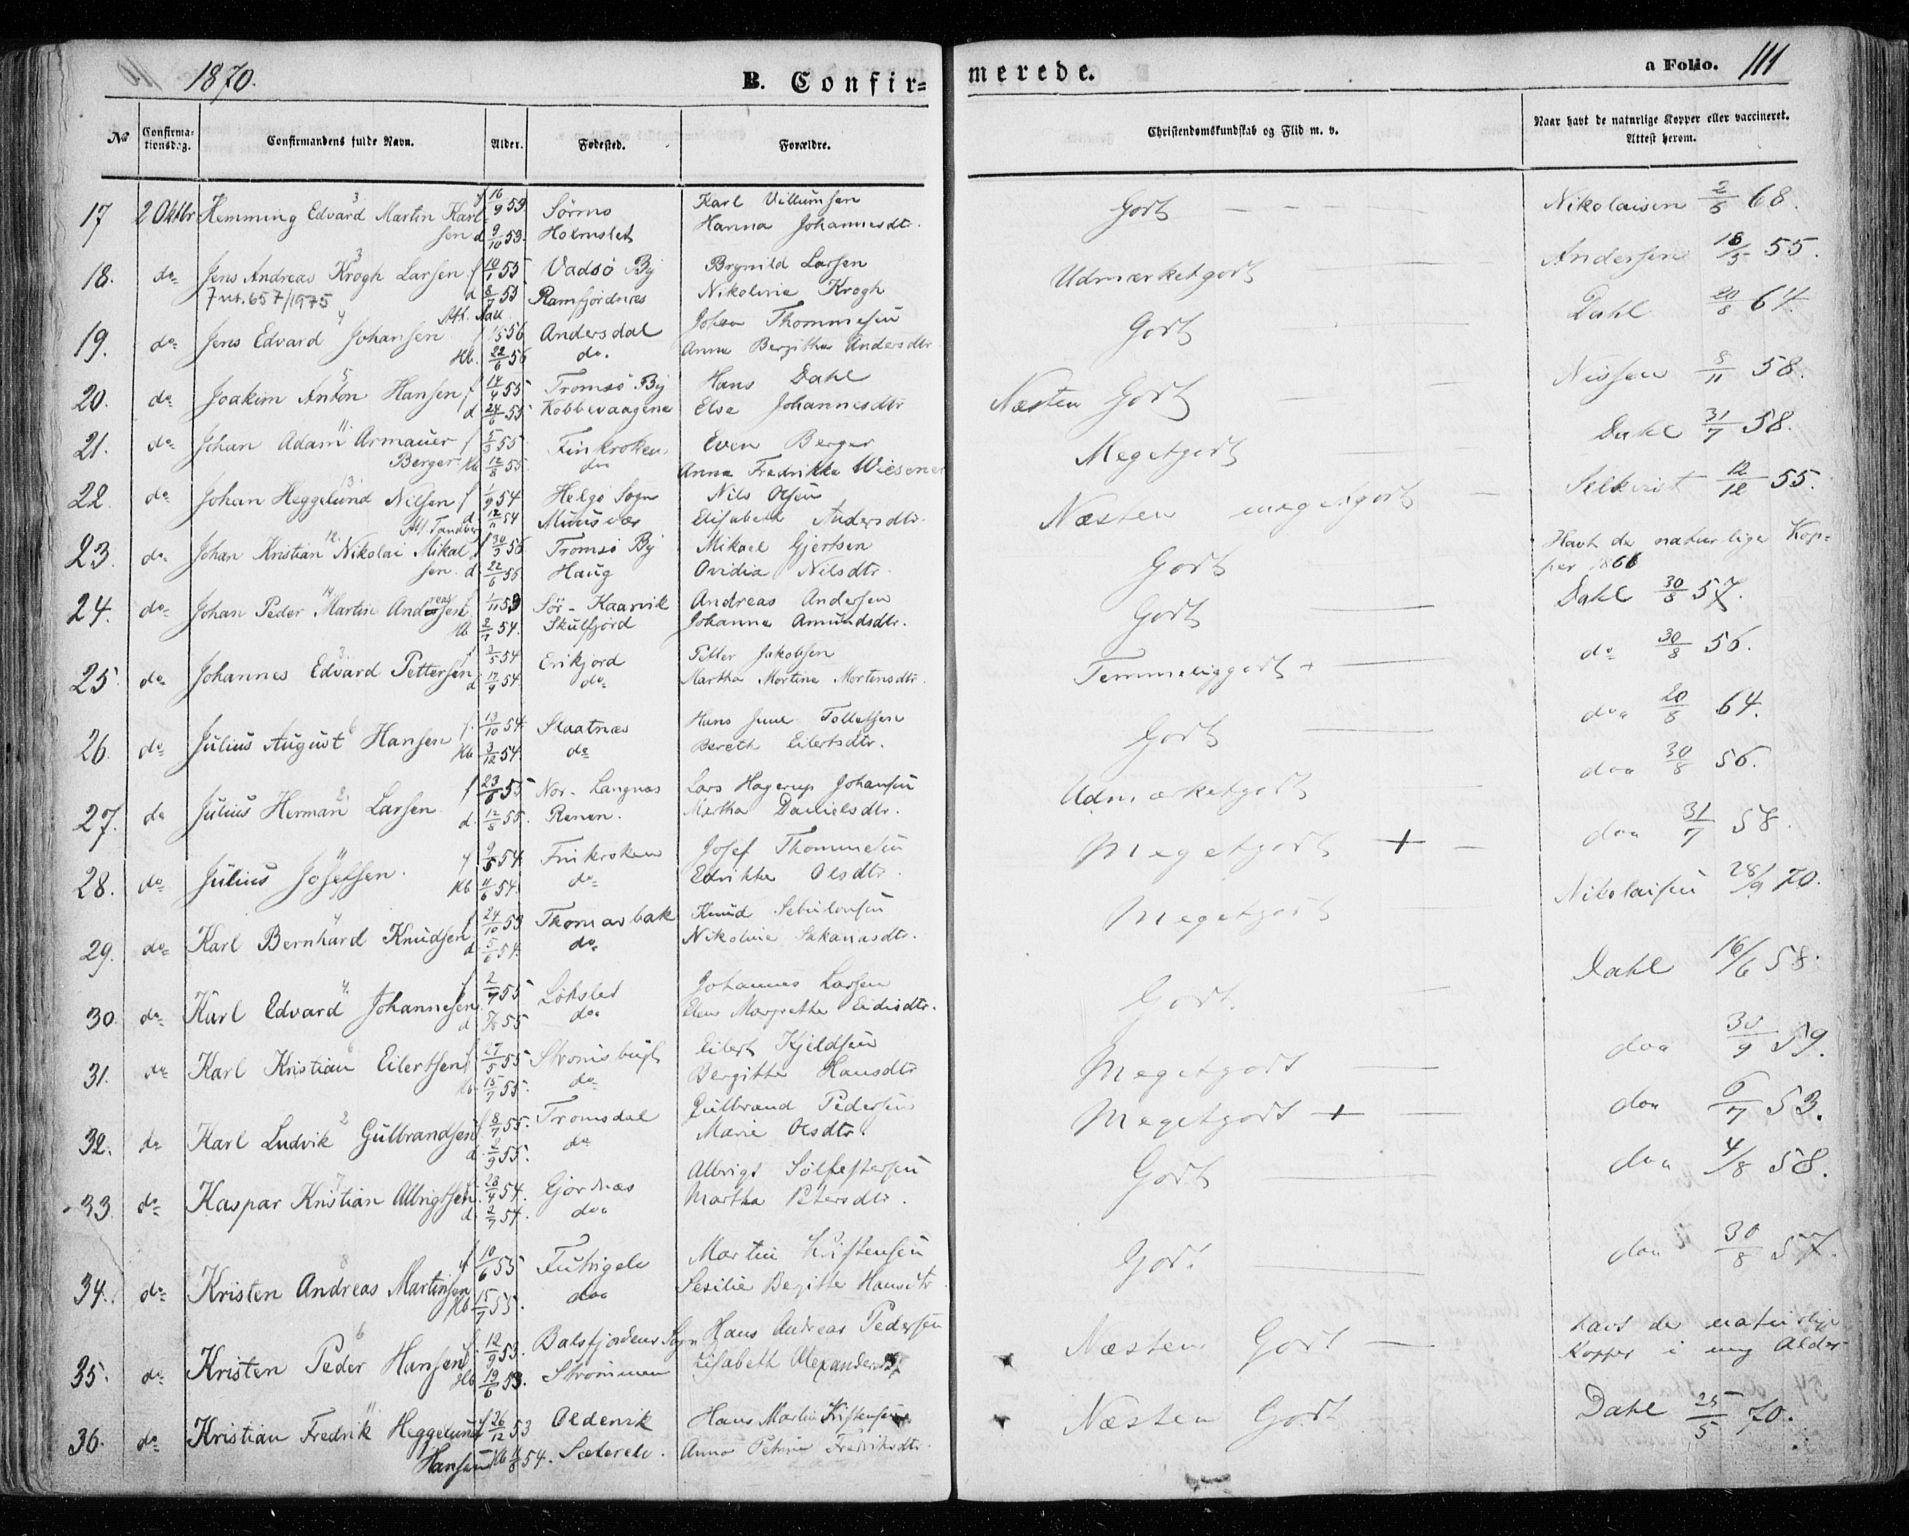 1870. B. Confir= merede. a Folio. 111
No Confirma-tionsdag. Confirmandens fulde Navn. Alder. Fødested. Forældre. Christendomskundskab og Flid m. v. Naar havt de naturlige Kopper eller vaccineret. Attest herom.
17 2 Oktbr Hemming Edvard Martin Karl f 16/9 53 Sörmo Karl Villumsen Godt Nikolaisen 2/5 68.
sen d 9/10 53. Holmslet Hanna Johannesdtr.
18. do Jens Andreas Krogh Larsen f 10/1 55 Vadsö By Brynild Larsen Udmærketgodt Andersen 18/5 55.
7 nt. 657/1975 d 8/7 55 Ramfjordnes Nikoline Krogh
19. do Jens Edvard Johansen 56 Andersdal Johan Thommesen Godt Dahl 20/8 64.
Hb. 22/6 56 do. Anna Bergitha Andersdtr
20. do Joakim Anton Hansen f 14/4 55 Tromsö By Hans Dahl Næsten Godt Nissen 5/11 58.
d 24/6 55 Kobbevaagene Else Johannesdtr
21. do Johan Adam Armauer f 5/3 55 Finkroken Even Berger Megetgodt Dahl 31/7 58.
Berger Hb 12/8 55. do Anna Fredrikke Wiesener
22 do Johan Heggelund Nilsen f 1/9 54 Helgö Sogn Nils Olsen Næsten megetgodt 12/12 55.
d 12/11 54 Muusvær Elisabeth Andersdtr.
23. do Johan Kristian Nikolai Mikal f 30/3 56 Tromsö By Mikael Gjertsen Godt Havt de naturlige Kop=
sen. d. 22/6 56. Haug Ovidia Nilsdtr. per 1866
24. do Johan Peder Martin Andersen f 1/11 53 Sör-Kaarvik Andreas Andersen Godt Dahl 30/8 57.
Hb 2/7 54. Skulfjord Johanna Amundsdtr.
25 do Johannes Edvard Pettersen f 2/5 54 Erikjord Petter Jakobsen Temmeliggodt + do 30/8 56.
d 17/9 54. do Martha Martine Mortensdtr.
26 do Julius August Hansen f. 13/10 54. Slaatnæs Hans Juul Tollefsen Godt doa 20/8 64.
Hb 3/12 54. do Bereth Eilertsdtr.
27. do Julius Herman Larsen f 23/6 55 Nor-Langnæs Lars Hagerup Johansen Udmærketgodt doa 30/8 56.
d. 12/8 55. Renen. Martha Danielsdtr.
28. do Julius Josefsen. f 9/5 54 Finkroken Josef Thommesen Megetgodt + doa 31/7 58.
Hb 11/6 54. do Edrikke Olsdtr.
29. do Karl Bernhard Knudsen f 24/10 53 Thomasbak Knud Sebulonsen Megetgodt Nikolaisen 28/9 70.
d 5/6 54. do Nikoline Sakariasdtr.
30. do Karl Edvard Johannesen f 2/7 55 Lökslet Johannes Larsen Godt. Dahl 16/6 58.
d 55 doa Elen Margrethe Eidisdtr.
31. do Karl Kristian Eilertsen f 27/5 55 Stromsbugt Eilert Kjeldsen Megetgodt doa 30/9 59.
Hb 15/7 55. do Bergitte Hansdtr
32. do Karl Ludvik Gulbrandsen f 8/7 55. Tromsdal Gulbrand Pedersen Megetgodt + doa 6/7 53.
d. 2/9 55. do Marie Olsdtr.
33. do Kaspar Kristian Albrigtsen 28/4 54. Gjordnæs Albrigt Sølfestersen Godt doa 4/8 58.
d. 2/7 54. doa Martha Petersdtr.
34. do Kristen Andreas Martinsen f 10/6 55 Futrigelv Martin Kristensen Godt doa 30/8 57.
Hb 15/7 55. doa Sesilie Begitte Hansdtr
35. do Kristen Peder Hansen f. 12/9 53. Balsfjordens Sogn Hans Andreas Pedersen Næsten Godt havt de naturlige
Hb 19/6 53. Strommen Elisabeth Alexandersdtr Kopper i ung Alder
36. do Kristian Fredrik Heggelund f 26/12 53 Oldervik Hans Martin Kristensen Næsten Godt Dahl 25/5 70.
Hansen Hb 54. Sæterelv. Anna Petrine Fredriksdtr.